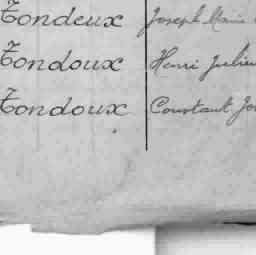 Tondeux Joseph Marie
Tondoux Henri Julien
Tondoux Constant